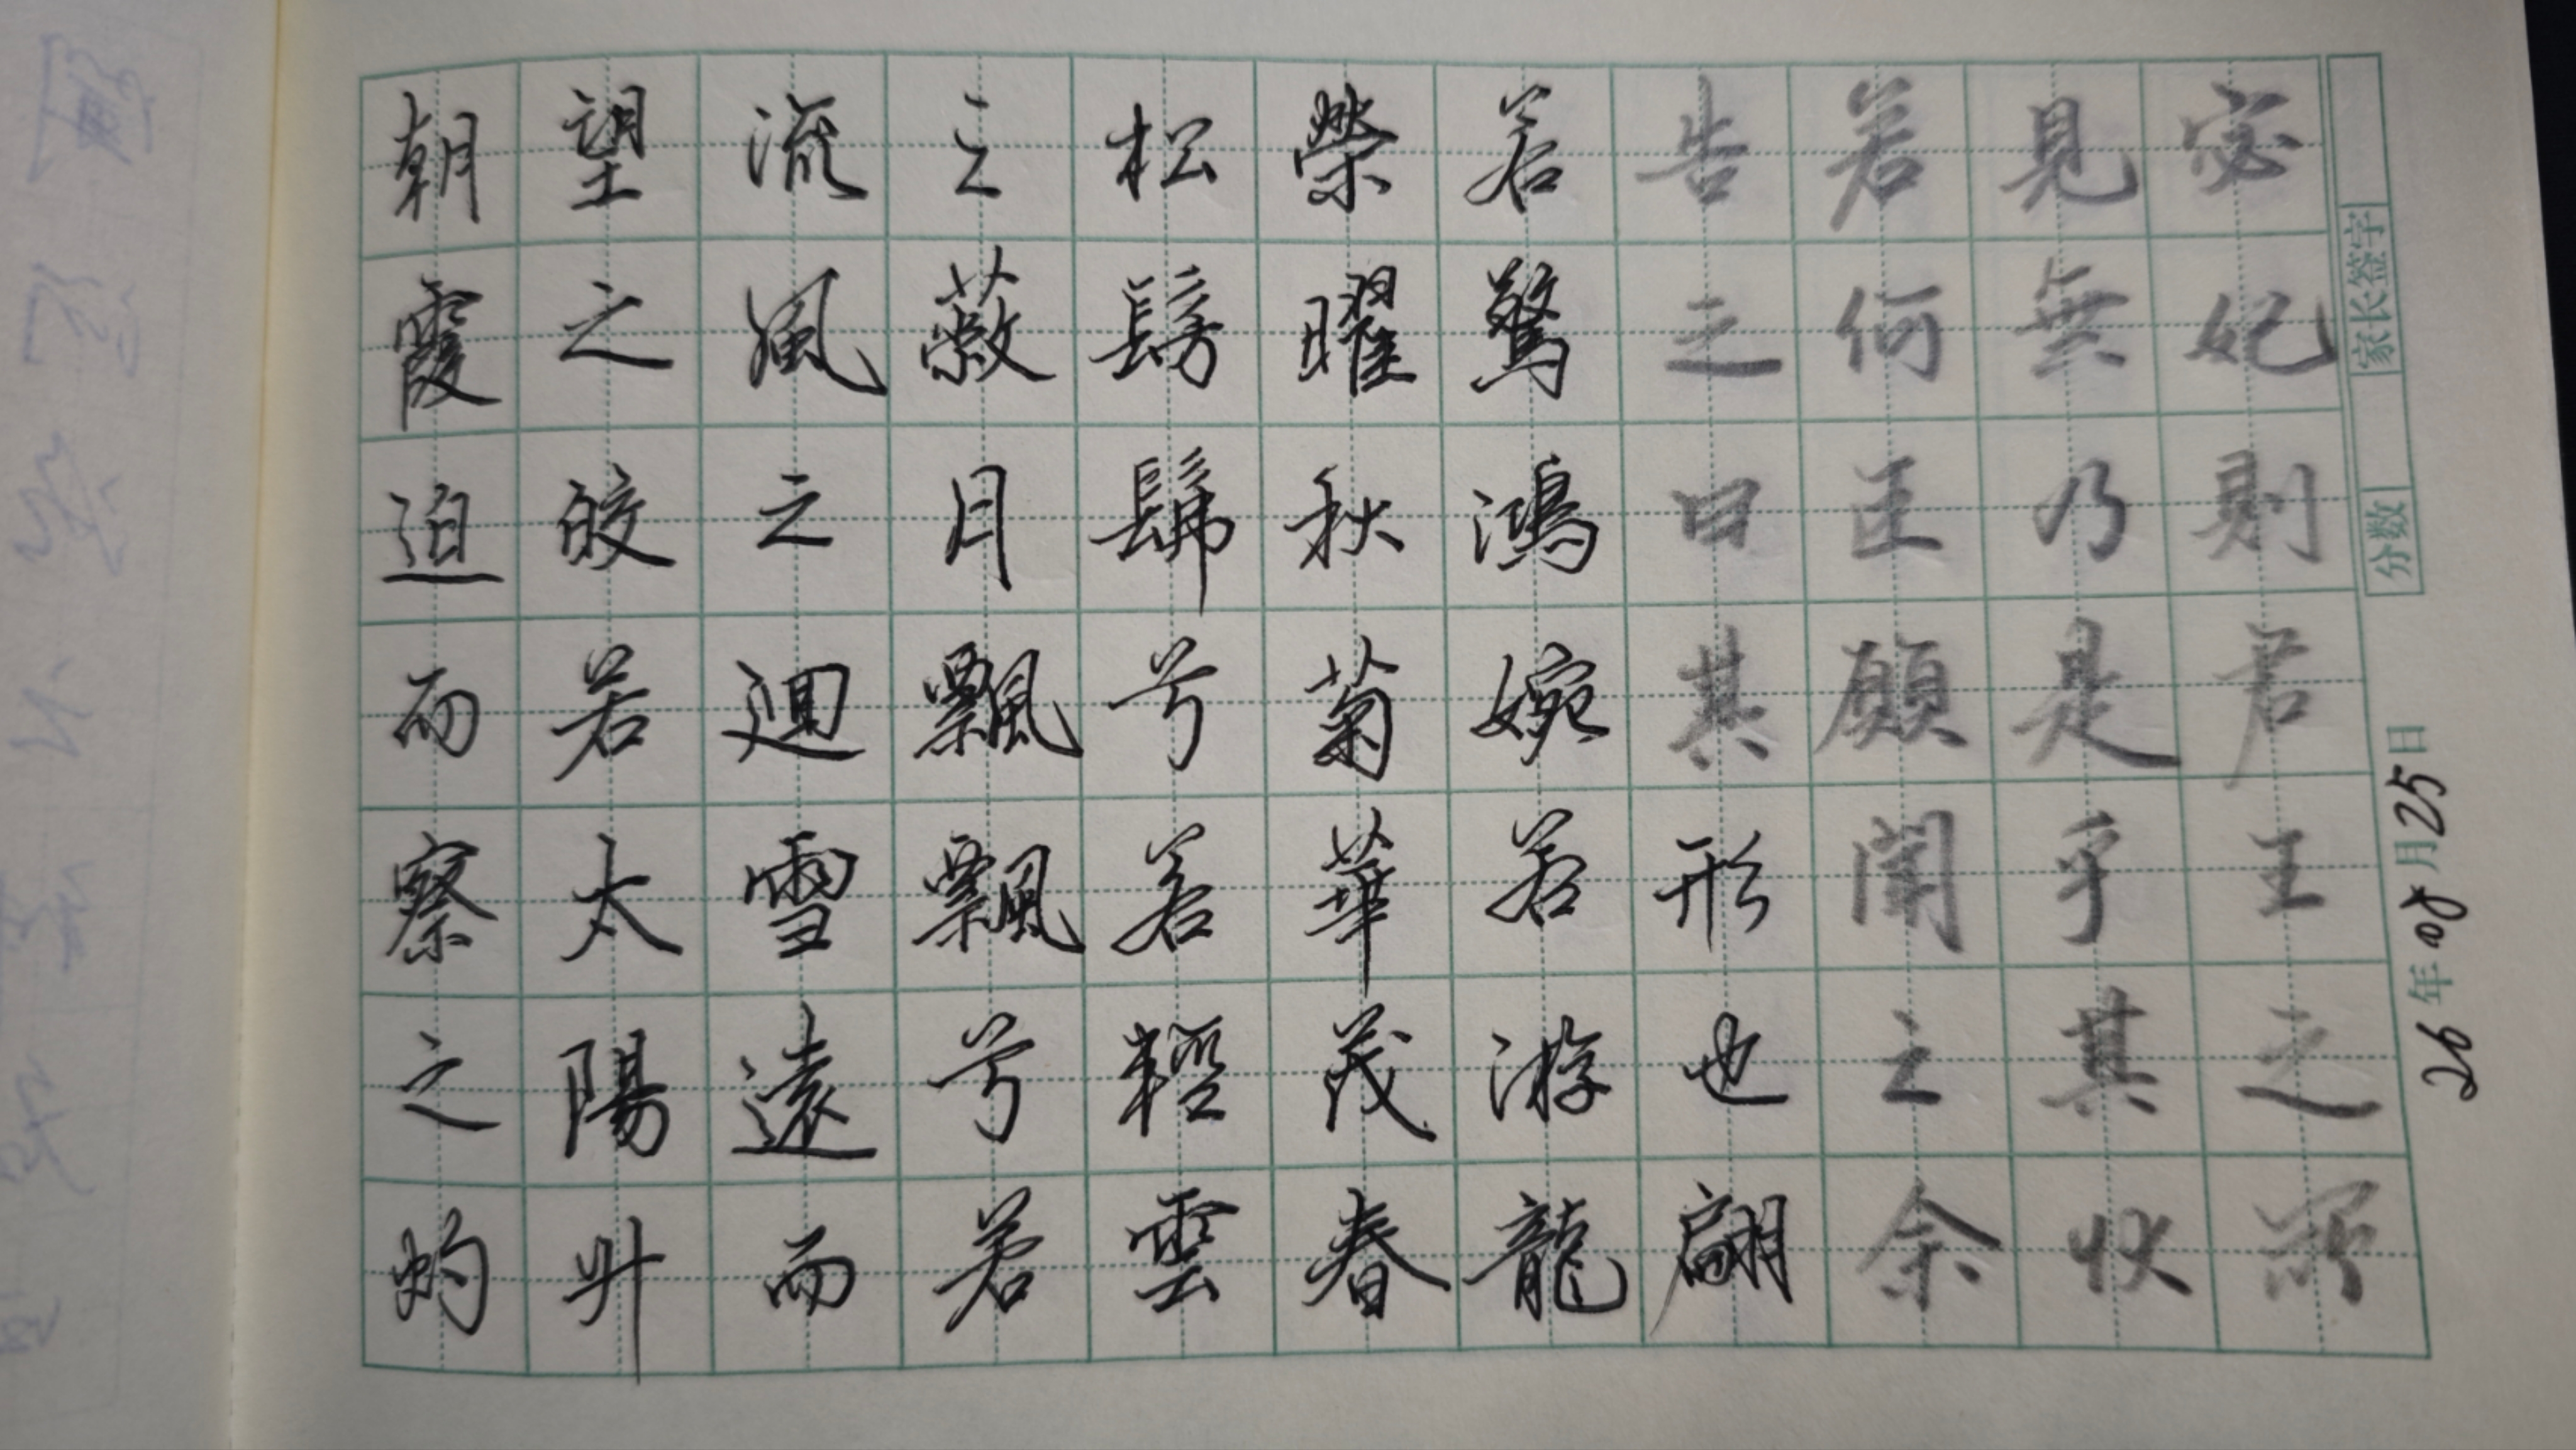 家长签字
分数
26年08月25日
宓妃則君王之所
見無乃是乎其狀
若何臣願聞之余
告之曰其形也翩
若驚鴻婉若游龍
榮曜秋菊華茂春
松髣髴兮若輕雲
之蔽月飄飄兮若
流之風迴雪遠而
望之皎若太陽升
朝霞迫而察之灼